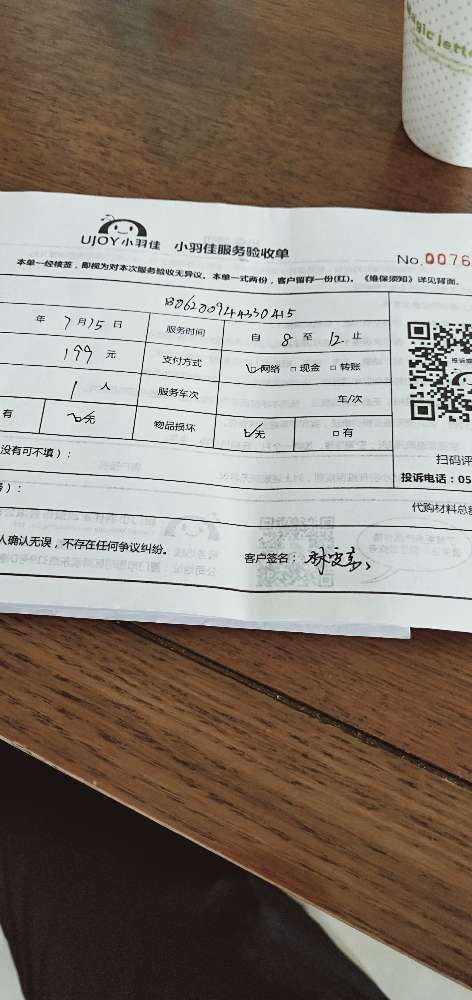 Magic jett
UJOY小羽佳 小羽佳服务验收单
No.0076
本单一经核签,即视为对本次服务验收无异议。本单一式两份,客户留存一份(红)。《维保须知》详见背面。
B06200944330415
年 7月15日 服务时间 自 8 至 12 止
199 元 支付方式 ☑网络 □现金 □转账
1 人 服务车次 车/次
有 ☑无 物品损坏 ☑无 □有
没有可不填):
扫码评
投诉电话:05
):
代购材料总额
人确认无误,不存在任何争议纠纷。
客户签名: